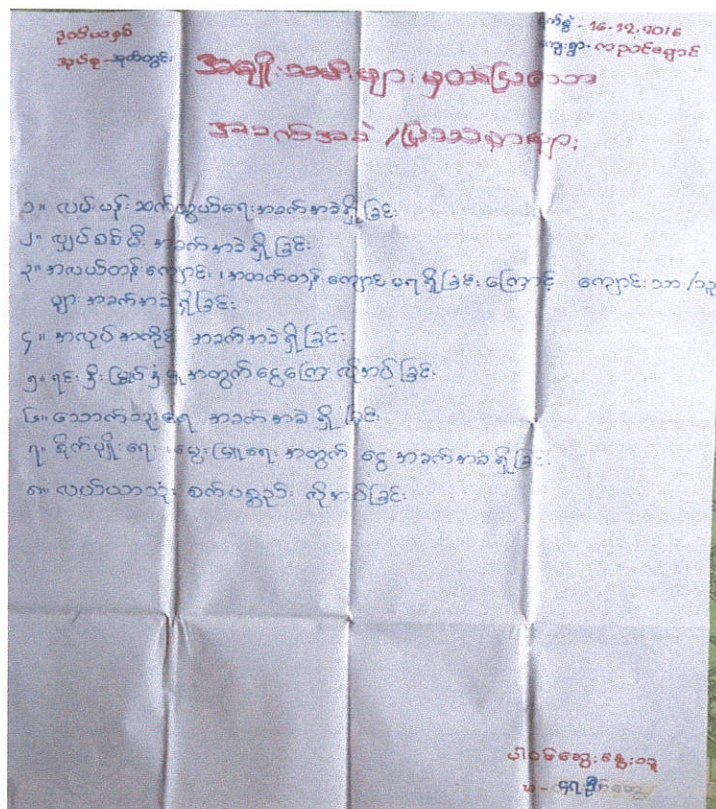 ဒုတိယနှစ်
အုပ်စု-အုတ်တွင်း
ရက်စွဲ - 16.12.2016
ကျေးရွာ- ကညင်ချောင်
အမျိုးသမီးများ မှတင်ပြသော
အခက်အခဲ /ပြဿနာများ
၁။ လမ်းပန်းဆက်သွယ်ရေး အခက်အခဲရှိခြင်း
၂။ လျှပ်စစ်မီး အခက်အခဲရှိခြင်း
၃။ အလယ်တန်းကျောင်း၊ အထက်တန်းကျောင်း မရှိခြင်းကြောင့် ကျောင်းသား/သူ
များ အခက်အခဲရှိခြင်း
၄။ အလုပ်အကိုင် အခက်အခဲရှိခြင်း
၅။ ရင်းနှီးမြှုပ်နှံမှု အတွက်ငွေကြေး လိုအပ်ခြင်း
၆။ သောက်သုံးရေ အခက်အခဲရှိခြင်း
၇။ စိုက်ပျိုးရေး၊ မွေးမြူရေး အတွက် ငွေ အခက်အခဲရှိခြင်း
၈။ လယ်ယာသုံး စက်ပစ္စည်း လိုအပ်ခြင်း
ပါဝင်ဆွေးနွေးသူ